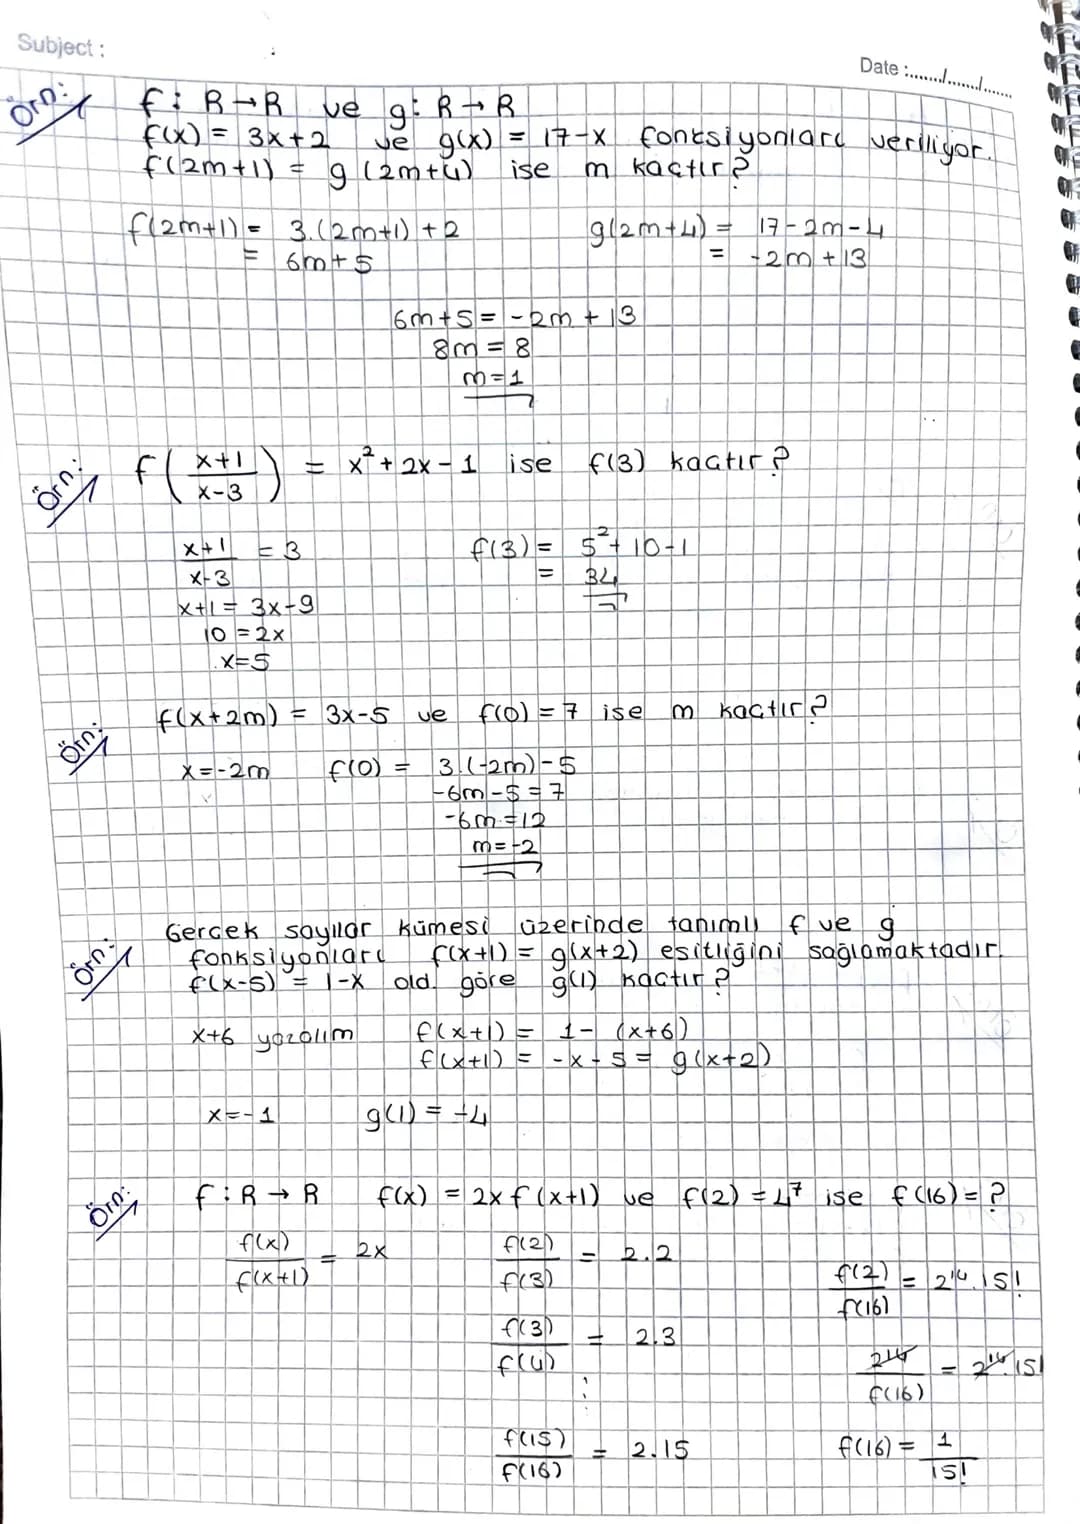 Subject :
Date :......./......./.......
Örn:
f : R → R ve g : R → R
f(x) = 3x+2 ve g(x) = 17-x fonksiyonları veriliyor.
f(2m+1) = g (2m+4) ise m kaçtır?
f(2m+1) = 3.(2m+1) + 2
= 6m+5
g(2m+4) = 17-2m-4
= -2m+13
6m+5 = -2m+13
8m = 8
m=1
Örn:
f((x+1)/(x-3)) = x²+2x-1 ise f(3) kaçtır?
(x+1)/(x-3) = 3
x+1 = 3x-9
10 = 2x
x=5
f(3) = 5²+10-1
= 34
Örn:
f(x+2m) = 3x-5 ve f(0) = 7 ise m kaçtır?
x=-2m
f(0) = 3.(-2m)-5
-6m-5=7
-6m=12
m=-2
Örn:
Gerçek sayılar kümesi üzerinde tanımlı f ve g
fonksiyonları f(x+1) = g(x+2) eşitliğini sağlamaktadır.
f(x-5) = 1-x old. göre g(1) kaçtır?
x+6 yazalım
f(x+1) = 1-(x+6)
f(x+1) = -x-5 = g(x+2)
x=-1 g(1) = -4
Örn:
f : R → R f(x) = 2x f(x+1) ve f(2) = 4⁷ ise f(16) = ?
f(x)/f(x+1) = 2x
f(2)/f(3) = 2.2
f(3)/f(4) = 2.3
⋮
f(15)/f(16) = 2.15
f(2)/f(16) = 2¹⁴.15!
2¹⁴/f(16) = 2¹⁴.15!
f(16) = 1/15!